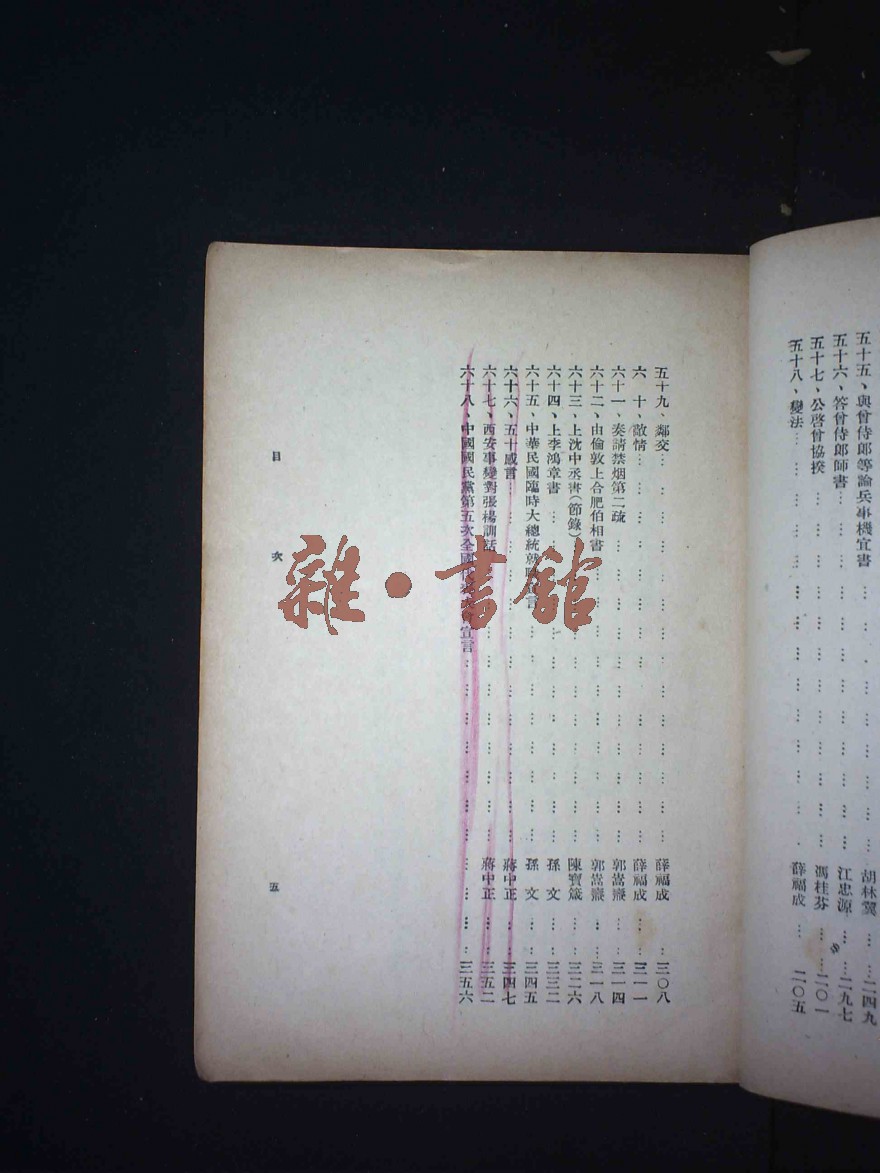 五十五、與曾侍郎等論兵事機宜書 … … … 胡林翼 … … 二四九
五十六、答曾侍郎師書 … … … 江忠源 … … 二九七
五十七、公啓曾協揆 … … … 馮桂芬 … … 二〇一
五十八、變法 … … … 薛福成 … 二〇五
五十九、鄰交 … … … 薛福成 … … 三〇八
六　十、敵情 … … … 薛福成 … … 三一一
六十一、奏請禁烟第二疏 … … … 郭嵩燾 … … 三一四
六十二、由倫敦上合肥伯相書 … … … 郭嵩燾 … … 三一八
六十三、上沈中丞書(節錄) … … … 陳寶箴 … … 三二六
六十四、上李鴻章書 … … … 孫　文 … … 三三二
六十五、中華民國臨時大總統就職宣言 … … … 孫　文 … … 三四五
六十六、五十感言 … … … 蔣中正 … … 三四七
六十七、西安事變對張楊訓話 … … … 蔣中正 … … 三五二
六十八、中國國民黨第五次全國代表大會宣言 … … … 三五六
目　次
五
雜·書館